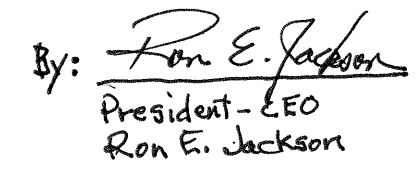 By: Ron E. Jackson
President - CEO
Ron E. Jackson